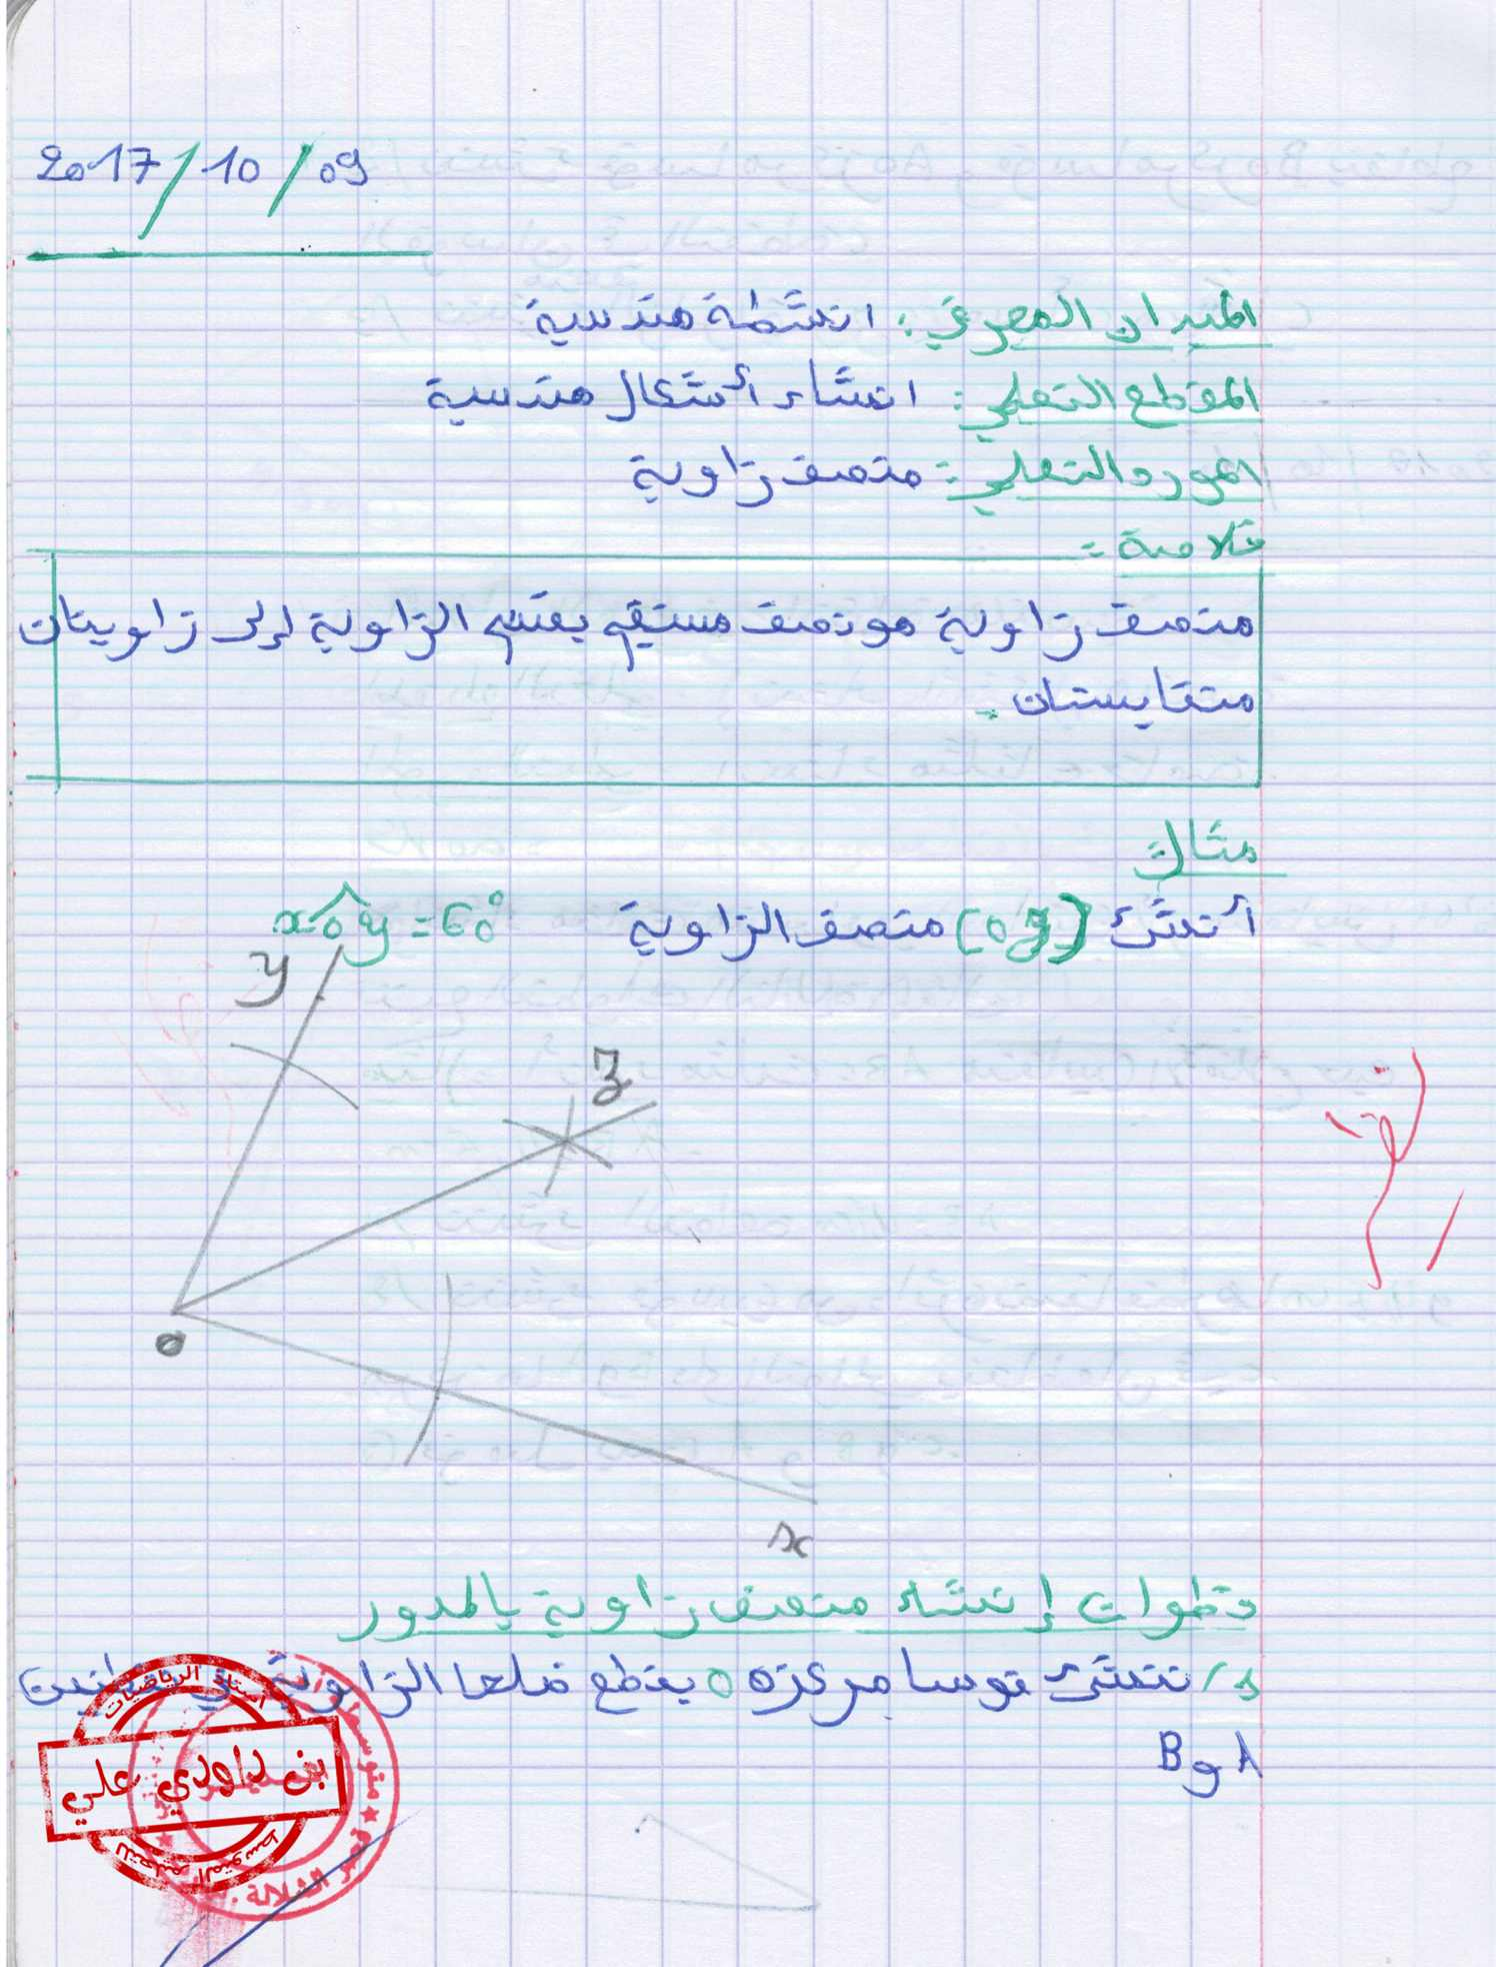 2017/10/09
الميدان المعرفي: انشطة هندسية
المقطع التعلمي: انشاء أشكال هندسية
المورد التعلمي: منصف زاوية
خلاصة:
منصف زاوية هو نصف مستقيم يقسم الزاوية إلى زاويتان
متقايستان.
مثال:
أنشئ [oz) منصف الزاوية xôy = 60°
y
z
o
x
خطوات إنشاء منصف زاوية بالمدور
1/ ننشئ قوسا مركزه o يقطع ضلعا الزاوية في نقطتين
A و B
أستاذ الرياضيات
بن داودي علي
للتعليم المتوسط
متوسطة
الشلالة